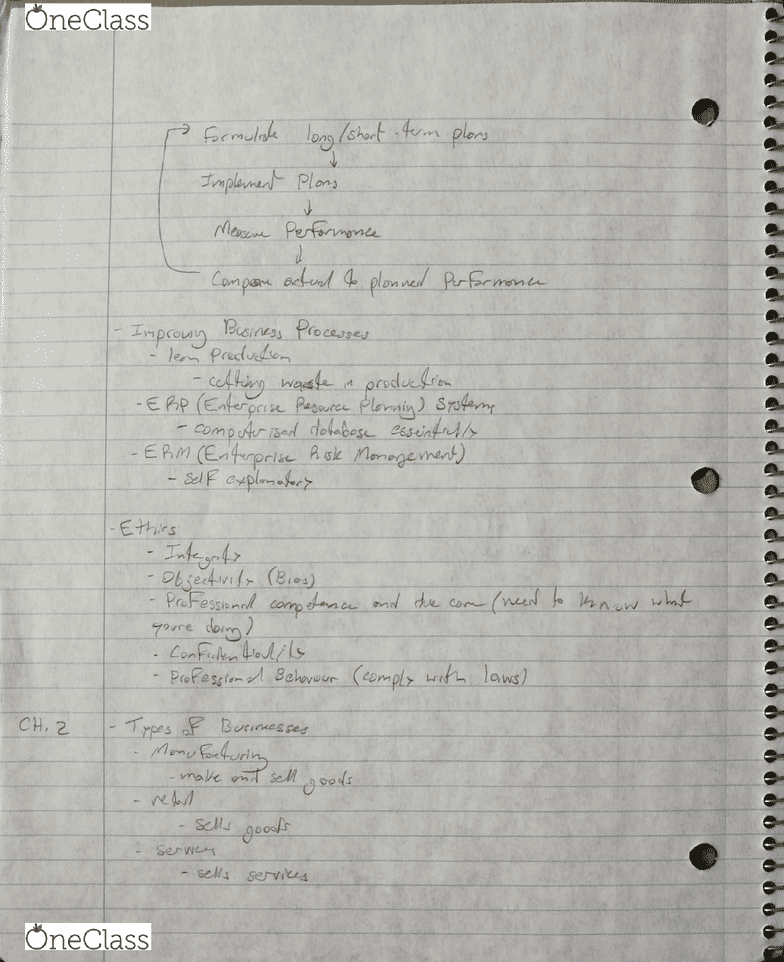 OneClass
Formulate long/short-term plans
↓
Implement Plans
↓
Measure Performance
↓
Compare actual to planned Performance
- Improving Business Processes
- lean Production
- cutting waste in production
- ERP (Enterprise Resource Planning) Systems
- computerised database essentially
- ERM (Enterprise Risk Management)
- self explanatory
- Ethics
- Integrity
- Objectivity (Bias)
- Professional competence and due care (need to know what
you're doing)
- Confidentiality
- Professional Behaviour (comply with laws)
CH. 2 - Types of Businesses
- Manufacturing
- make and sell goods
- retail
- sells goods
- services
- sells services
OneClass